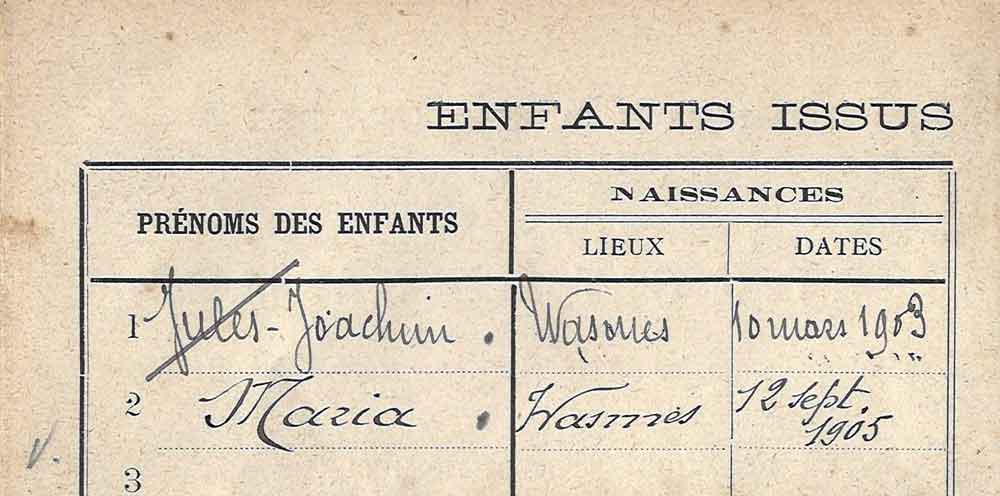 ENFANTS ISSUS
PRÉNOMS DES ENFANTS
NAISSANCES
LIEUX
DATES
1 Jules-Joachim. Wasmes 10 mars 1903
2 Maria. Wasmes 12 sept.
1905
v.
3